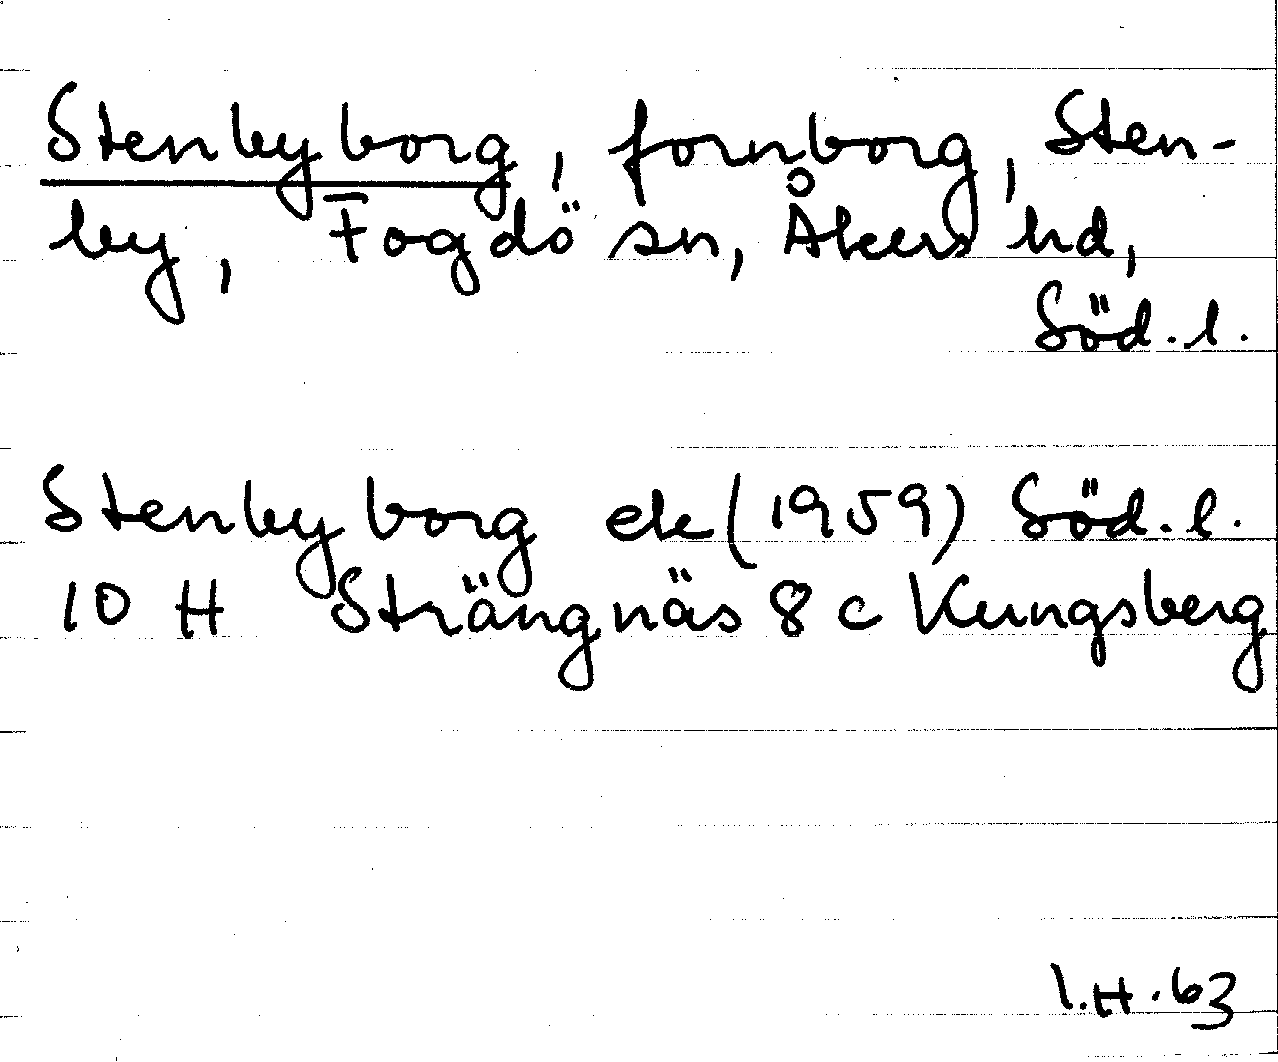 Stenbyborg, fornborg, Sten-
by, Fogdö sn, Åkers hd,
Söd. l.
Stenbyborg ek (1959) Söd. l.
10 H Strängnäs 8 c Kungsberg
I.H. 63